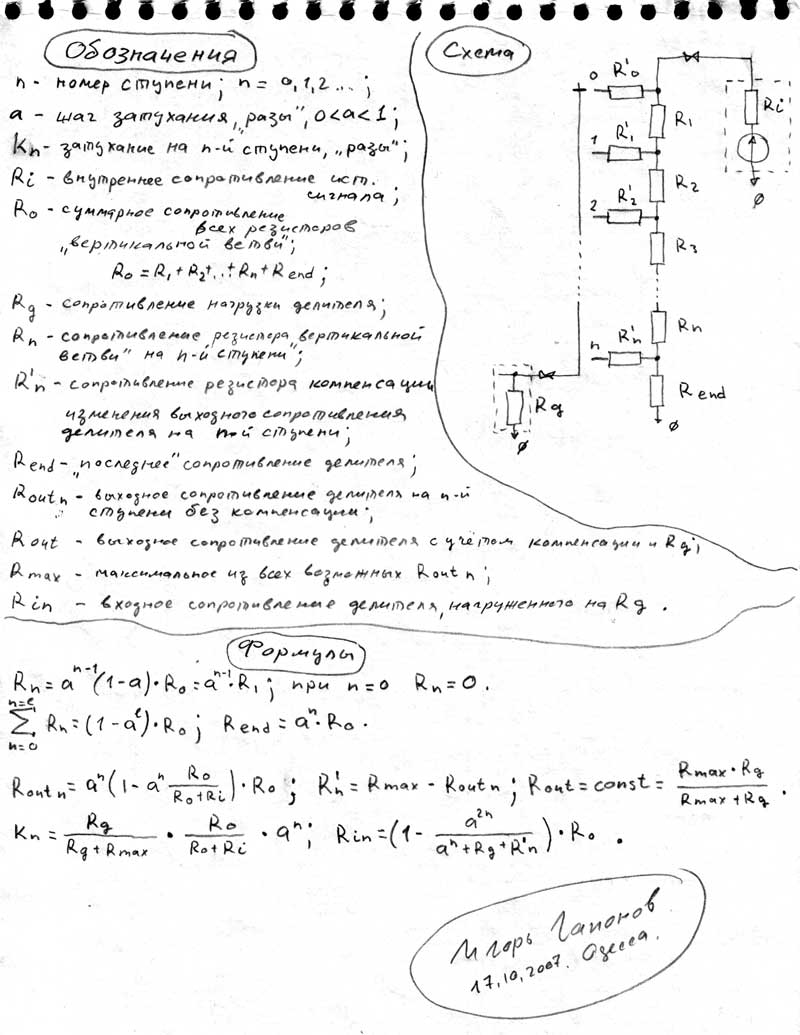 Обозначения
n - номер ступени; n = 0,1,2...;
a - шаг затухания, „разы", 0<a<1;
Kn - затухание на n-й ступени, „разы";
Ri - внутреннее сопротивление ист.
сигнала;
Ro - суммарное сопротивление
всех резисторов
„вертикальной ветви";
Ro = R1 + R2 + .. + Rn + Rend;
Rg - сопротивление нагрузки делителя;
Rn - сопротивление резистора „вертикальной
ветви" на n-й ступени";
R'n - сопротивление резистора компенсации
изменения выходного сопротивления
делителя на n-ой ступени;
Rend - „последнее" сопротивление делителя;
Rout n - выходное сопротивление делителя на n-й
ступени без компенсации;
Rout - выходное сопротивление делителя с учётом компенсации и Rg;
Rmax - максимальное из всех возможных Rout n;
Rin - входное сопротивление делителя, нагруженного на Rg.
Схема
0 R'o
Ri
R1
1 R'1
R2
2 R'2
ø
R3
Rn
n R'n
Rend
Rg
ø
ø
Формулы
Rn = a^(n-1) (1-a)·Ro = a^(n-1)·R1; при n=0 Rn=0.
n=ℓ
∑ Rn = (1-a^ℓ)·Ro; Rend = a^n·Ro.
n=0
Rout n = a^n (1 - a^n Ro/(Ro+Ri))·Ro; R'n = Rmax - Rout n; Rout = const = Rmax·Rg/(Rmax+Rg).
Kn = Rg/(Rg+Rmax) · Ro/(Ro+Ri) · a^n; Rin = (1 - a^(2n)/(a^n+Rg+R'n))·Ro.
Игорь Гапонов
17,10,2007. Одесса.